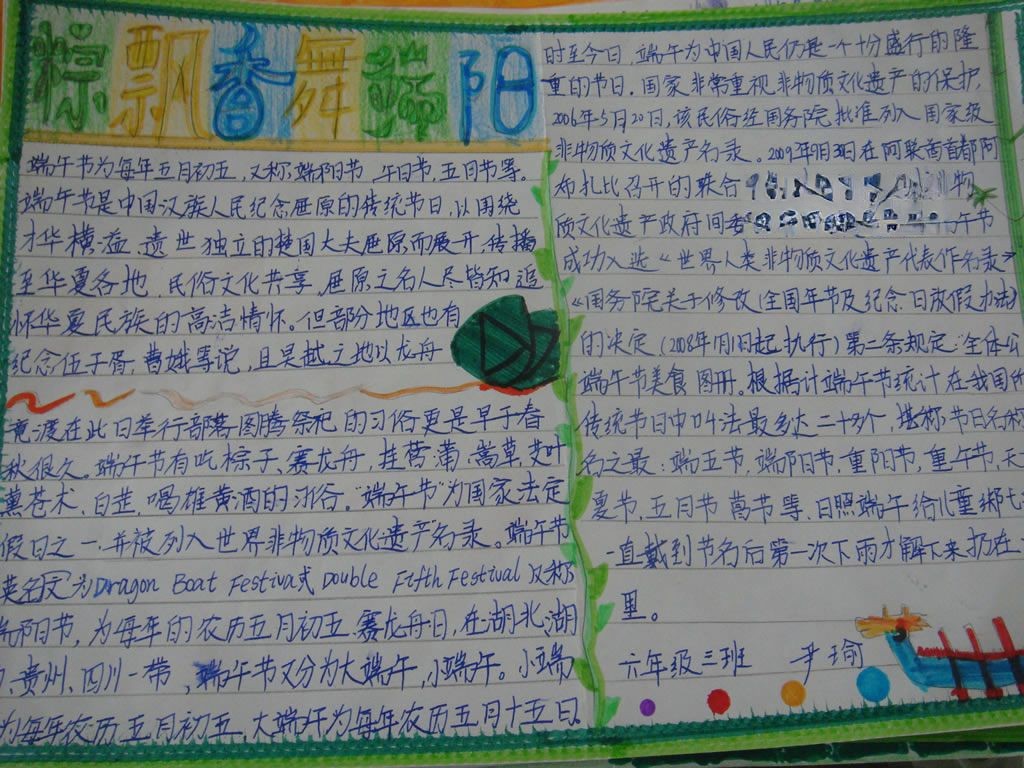 粽飘香舞端阳
端午节为每年五月初五，又称端阳节、午日节、五月节等。
端午节是中国汉族人民纪念屈原的传统节日，以围绕
才华横溢、遗世独立的楚国大夫屈原而展开，传播
至华夏各地，民俗文化共享，屈原之名人尽皆知，追
怀华夏民族的高洁情怀。但部分地区也有
纪念伍子胥，曹娥等说，且吴越之地以龙舟
竞渡在此日举行部落图腾祭祀的习俗更是早于春
秋很久。端午节有吃粽子、赛龙舟，挂菖蒲、蒿草、艾叶
薰苍术、白芷、喝雄黄酒的习俗。“端午节”为国家法定
假日之一，并被列入世界非物质文化遗产名录。端午节
英名文为Dragon Boat Festival或Double Fifth Festival又称
端阳节，为每年的农历五月初五赛龙舟日，在湖北、湖
、贵州、四川一带，端午节又分为大端午，小端午。小端
为每年农历五月初五，大端午为每年农历五月十五日。
时至今日，端午为中国人民仍是一个十份盛行的隆
重的节日。国家非常重视非物质文化遗产的保护，
2006年5月20日，该民俗经国务院批准列入国家级
非物质文化遗产名录。2009年9月30日在阿联酋首都阿
布扎比召开的联合 物
质文化遗产政府间委 午节
成功入选《世界人类非物质文化遗产代表作名录》
《国务院关于修改〈全国年节及纪念日放假办法〉
的决定（2008年1月1日起执行）第二条规定“全体公
端午节美食图册。根据计端午节统计在我国所
传统节日中叫法最多达二十多个，堪称节日名称
名之最：端五节，端阳节，重阳节，重午节，天
夏节，五月节 节等、日照端午给儿童绑七
一直戴到节名后第一次下雨才解下来扔在
里。
六年级三班 尹瑜